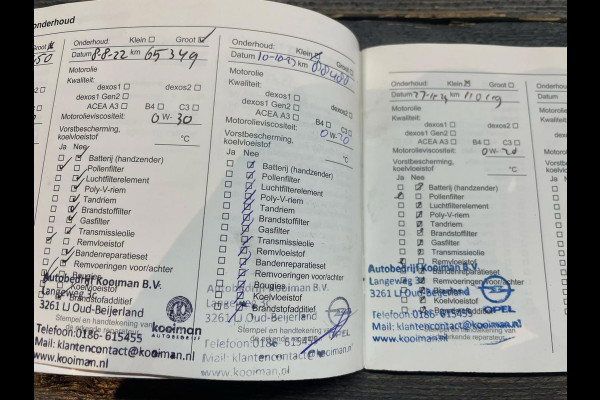 onderhoud
Groot
Onderhoud: Klein Groot
Datum 8-8-22 km 65349
Motorolie
Kwaliteit:
dexos1 dexos2
dexos1 Gen2
ACEA A3 B4 C3
Motorolieviscositeit: 0 W-30
Vorstbescherming,
koelvloeistof °C
Ja Nee
Batterij (handzender)
Pollenfilter
Luchtfilterelement
Poly-V-riem
Tandriem
Brandstoffilter
Gasfilter
Transmissieolie
Remvloeistof
Bandenreparatieset
Remvoeringen voor/achter
Bougies
Koelvloeistof
Brandstofadditief
Autobedrijf Kooiman B.V.
Langeweg 3c
3261 LJ Oud-Beijerland
Stempel en handtekening van
Telefoon:0186-615455
Mail: klantencontact@kooiman.nl
www.kooiman.nl
kooiman
AUTOBEDRIJF
Onderhoud: Klein Groot
Datum 10-10-23 km
Motorolie
Kwaliteit:
dexos1 dexos2
dexos1 Gen2
ACEA A3 B4 C3
Motorolieviscositeit: 0 W-20
Vorstbescherming,
koelvloeistof °C
Ja Nee
Batterij (handzender)
Pollenfilter
Luchtfilterelement
Poly-V-riem
Tandriem
Brandstoffilter
Gasfilter
Transmissieolie
Remvloeistof
Bandenreparatieset
Remvoeringen voor/achter
Bougies
Koelvloeistof
Brandstofadditief
Autobedrijf Kooiman B.V.
Langeweg 3c
3261 LJ Oud-Beijerland
Stempel en handtekening van
de erkende reparateur
Telefoon:0186-615455
Mail: klantencontact@kooiman.nl
www.kooiman.nl
OPEL
Onderhoud: Klein Groot
Datum km
Motorolie
Kwaliteit:
dexos1 dexos2
dexos1 Gen2
ACEA A3 B4 C3
Motorolieviscositeit: 0 W-20
Vorstbescherming,
koelvloeistof °C
Ja Nee
Batterij (handzender)
Pollenfilter
Luchtfilterelement
Poly-V-riem
Tandriem
Brandstoffilter
Gasfilter
Transmissieolie
Remvloeistof
Bandenreparatieset
Remvoeringen voor/achter
Autobedrijf Kooiman B.V.
Langeweg 3c
3261 LJ Oud-Beijerland
Telefoon:0186-615455
Mail: klantencontact@kooiman.nl
www.kooiman.nl
OPEL
Onderhoud:
Datum
Motorolie
Kwaliteit:
Ja Nee